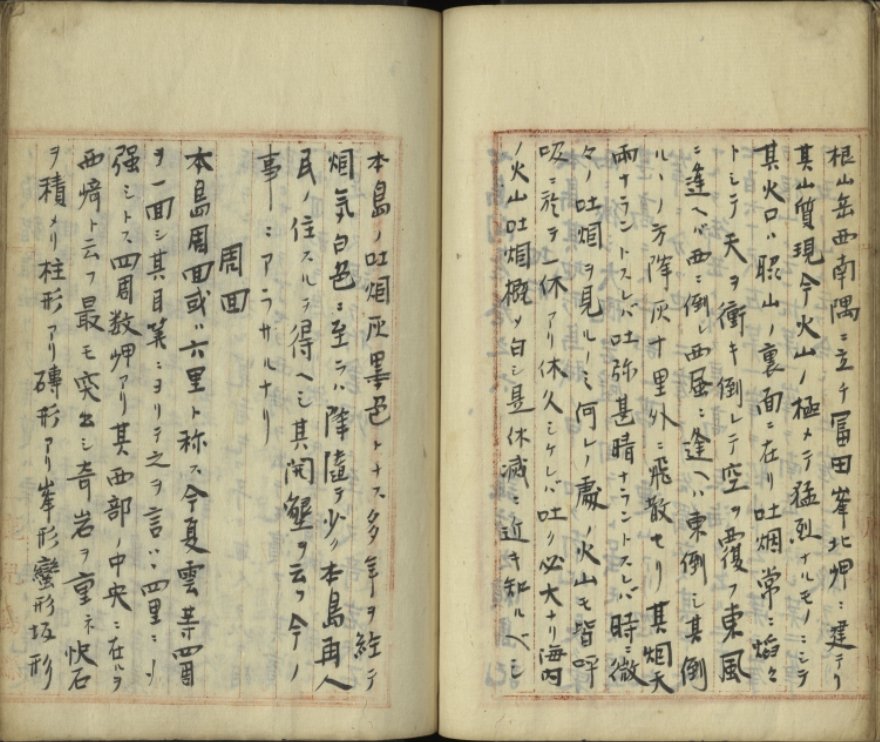 根山岳西南隅ニ立チ冨田峯北岬ニ建テリ
其山質現今火山ノ極メテ猛烈ナルモノニシテ
其火口ハ聡山ノ裏面ニ在リ吐烟常ニ焰々
トシテ天ヲ衝キ倒レテ空ヲ覆フ東風
ニ逢ヘバ西ニ倒レ西風ニ逢ヘハ東倒シ其倒
ルヽノ方降灰十里外ニ飛散セリ其烟天
雨ナラントスレバ吐弥甚晴ナラントスレバ時ニ微
々ノ吐烟ヲ見ルノミ何レノ處ノ火山モ皆呼
吸ニ於テ一休アリ休久シケレバ吐ク必大ナリ海内
ノ火山吐烟概メ白シ是休滅ニ近キ知ルベシ
本島ノ吐烟灰墨色トナス多年ヲ経テ
烟気白色ニ至ラハ降随テ少ク本島再人
民ノ住スルヲ得ヘシ其開墾ヲ云フ今ノ
事ニアラサルナリ
周回
本島周回或ハ六里ト称ス今夏雲其四周
ヲ一回シ其目算ニヨリテ之ヲ言ハヽ四里ニ少
强シトス四周数岬アリ其西部ノ中央ニ在ルヲ
西﨑ト云フ最モ突出シ奇岩ヲ重ネ快石
ヲ積メリ柱形アリ磚形アリ峯形巒形坂形